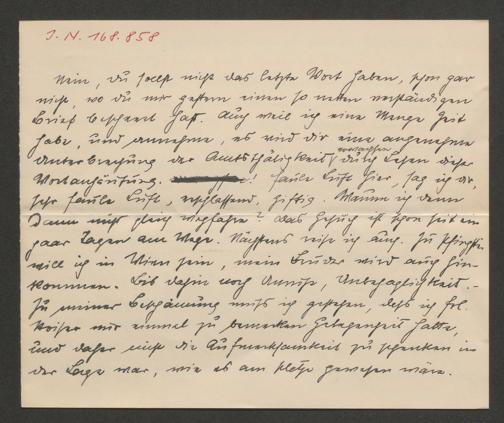 I.N. 168.858
Nein, du sollst nicht das letzte Wort haben, schon gar
nicht, wo du mir gestern einen so netten verständigen
Brief beschert hast. Auch weil ich eine Menge Zeit
habe, und annehme, es wird dir eine angenehme
Unterbrechung der Amtsthätigkeit durch Lesen dieser
Wortanhäufung. Faule Luft hier, sag ich dir,
sehr faule Luft, erschlaffend, giftig. Warum ich denn
dann nicht gleich wegfahre? das Gesuch ist schon seit ein
paar Tagen am Wege. Nächstens reise ich auch. Zu Pfingsten
will ich in Wien sein, mein Bruder wird auch hin-
kommen. Bis dahin noch Unruhe, Unbehaglichkeit.-
Zu meiner Beschämung muß ich gestehen, daß ich Frl.
Kaiser nur einmal zu bemerken Gelegenheit hatte,
und daher nicht die Aufmerksamkeit zu schenken in
der Lage war, wie es am Platze gewesen wäre.